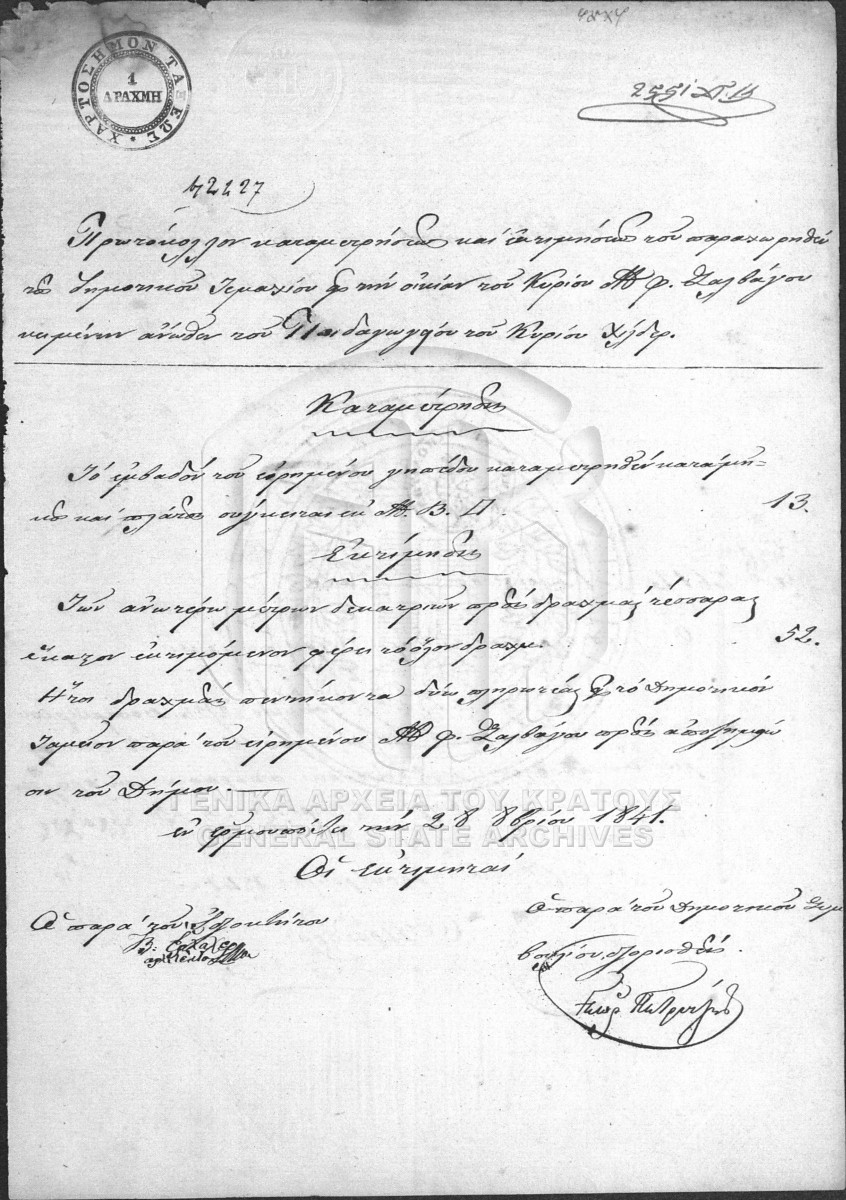 ΧΑΡΤΟΣΗΜΟΝ ΤΑΞΕΩΣ
1
ΔΡΑΧΜΗ
42227
Πρωτόκολλον καταμετρήσεως και εκτιμήσεως του παραχωρηθέν
τος δημοτικού γεμαχίου εις την οικίαν του Κυρίου Μ φ. Σαλβάγου
κειμένην άνωθεν του Παιδαγωγείου του Κυρίου Χίλδερ.
Καταμέτρησις
Το εμβαδόν του ειρημένου γηπέδου καταμετρηθέν κατά μή-
κος και πλάτος σύγκειται εκ Μ. Β. Π. 13.
Εκτίμησις
Των ανωτέρω μέτρων δεκατριών προς δραχμάς τέσσαρας
έκαστον εκτιμόμενον φέρει το όλον δραχμ. 52.
Ήτοι δραχμάς πεντήκοντα δύω πληρωτέας εις το Δημοτικόν
Ταμείον παρά του ειρημένου Μ φ. Σαλβάγου προς αποζημίω
σιν του Δήμου. —
εν Ερμουπόλει την 28 8βρίου 1841.
Οι Εκτιμηταί
Ο παρά του Ιδιοκτήτου
Ο παρά του Δημοτικού Συμ
βουλίου διορισθείς.
ΓΕΝΙΚΑ ΑΡΧΕΙΑ ΤΟΥ ΚΡΑΤΟΥΣ
GENERAL STATE ARCHIVES